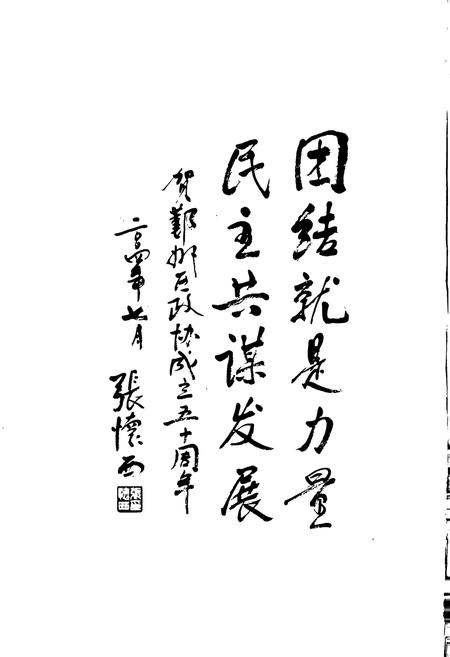 团结就是力量
民主共谋发展
贺鄞州区政协成立五十周年
二〇〇四年七月
張懷西